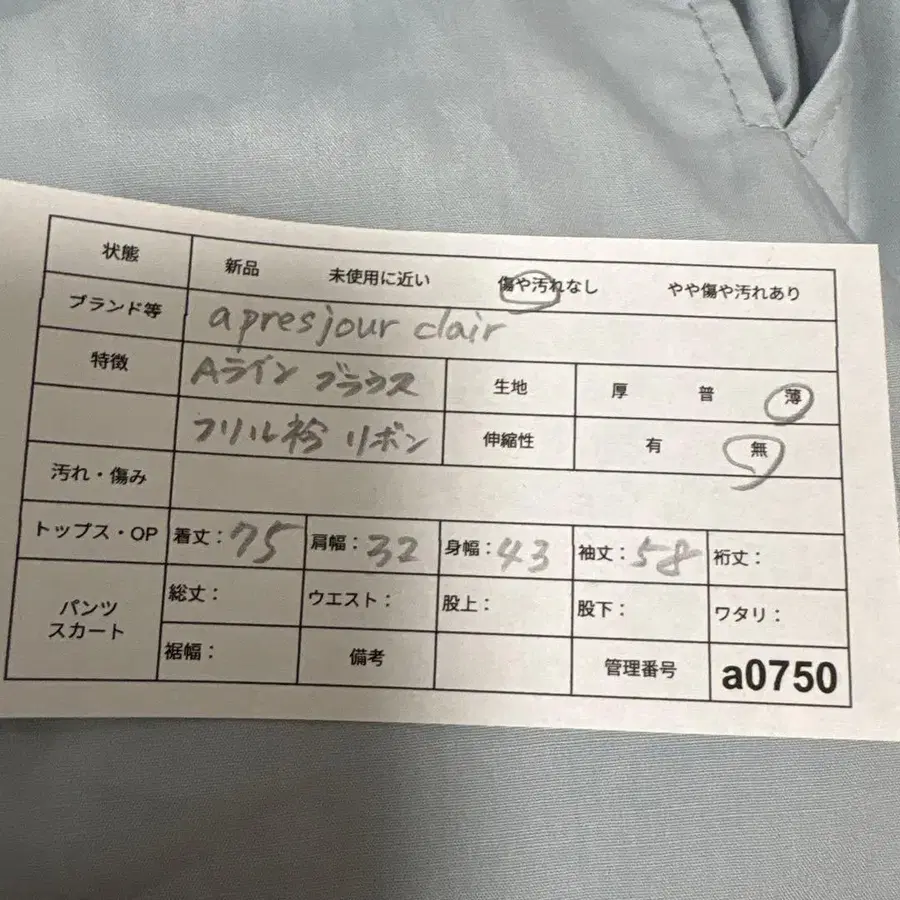 状態 新品 未使用に近い 傷や汚れなし やや傷や汚れあり
ブランド等 apresjour clair
特徴 Aライン ブラウス 生地 厚 普 薄
フリル衿 リボン 伸縮性 有 無
汚れ・傷み
トップス・OP 着丈：75 肩幅：32 身幅：43 袖丈：58 裄丈：
パンツ スカート 総丈： ウエスト： 股上： 股下： ワタリ：
裾幅： 備考 管理番号 a0750